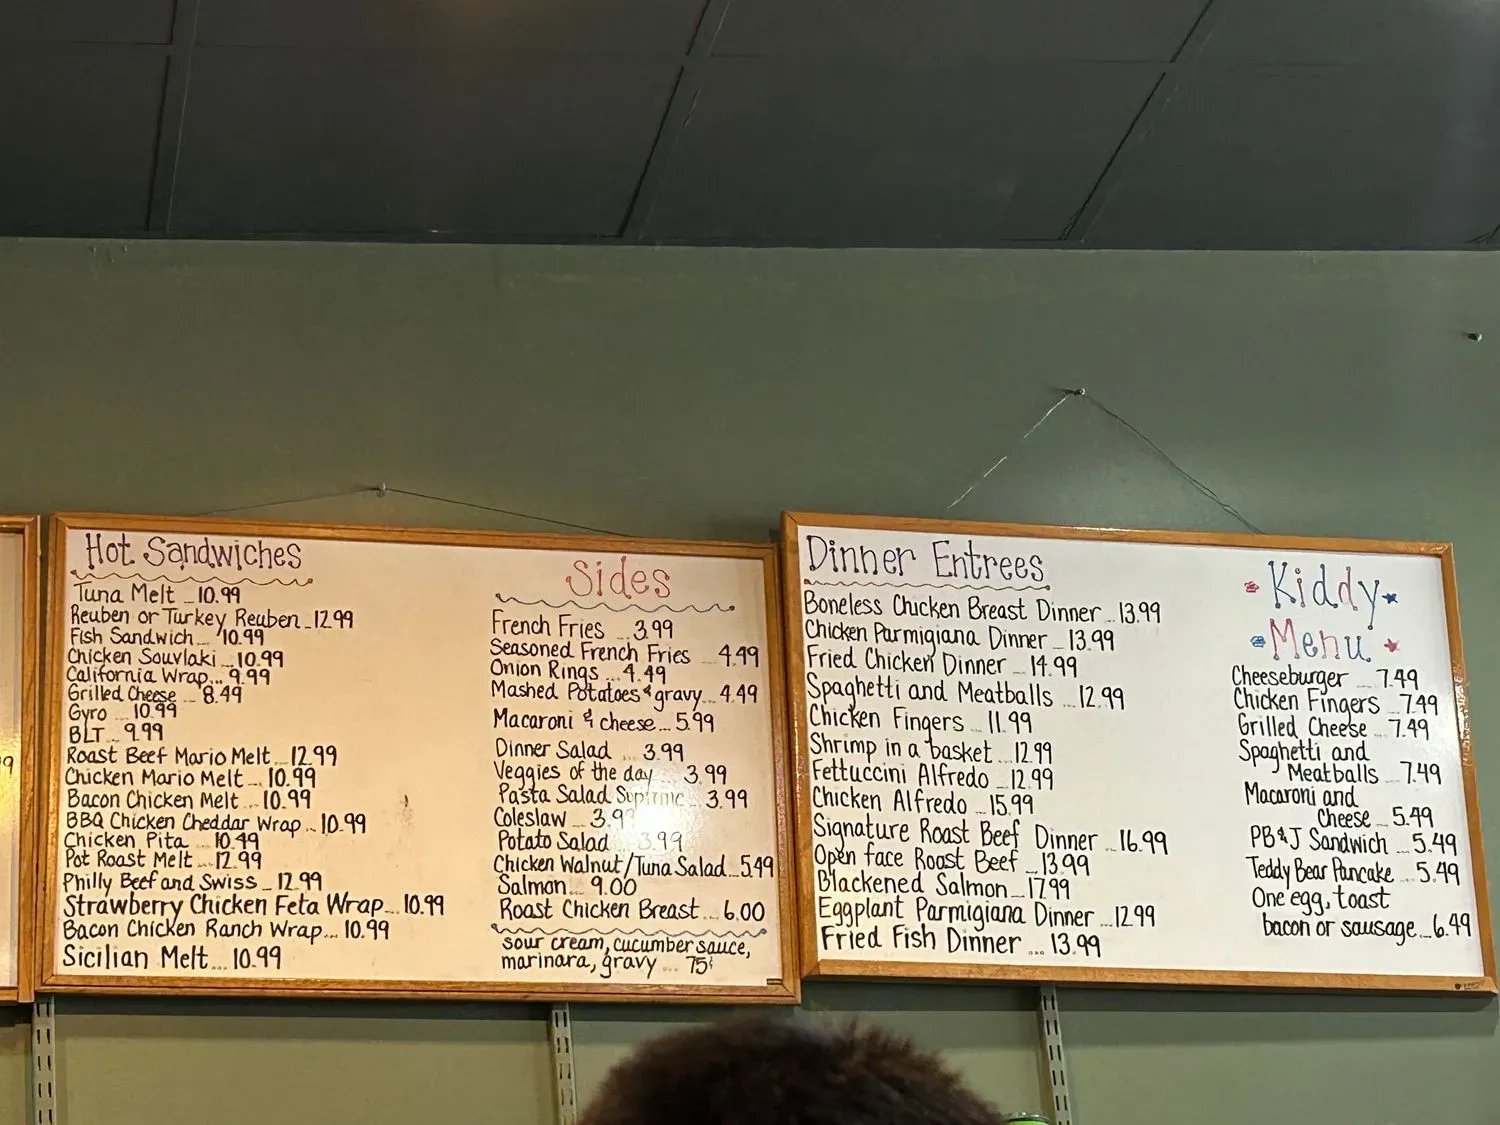 9
Hot Sandwiches
Tuna Melt ... 10.99
Reuben or Turkey Reuben ... 12.99
Fish Sandwich ... 10.99
Chicken Souvlaki ... 10.99
California Wrap ... 9.99
Grilled Cheese ... 8.49
Gyro ... 10.99
BLT ... 9.99
Roast Beef Mario Melt ... 12.99
Chicken Mario Melt ... 10.99
Bacon Chicken Melt ... 10.99
BBQ Chicken Cheddar Wrap ... 10.99
Chicken Pita ... 10.49
Pot Roast Melt ... 12.99
Philly Beef and Swiss ... 12.99
Strawberry Chicken Feta Wrap ... 10.99
Bacon Chicken Ranch Wrap ... 10.99
Sicilian Melt ... 10.99
Sides
French Fries ... 3.99
Seasoned French Fries ... 4.49
Onion Rings ... 4.49
Mashed Potatoes & gravy ... 4.49
Macaroni & cheese ... 5.99
Dinner Salad ... 3.99
Veggies of the day ... 3.99
Pasta Salad Supreme ... 3.99
Coleslaw ... 3.99
Potato Salad ... 3.99
Chicken Walnut/Tuna Salad ... 5.49
Salmon ... 9.00
Roast Chicken Breast ... 6.00
sour cream, cucumber sauce,
marinara, gravy ... 75¢
Dinner Entrees
Boneless Chicken Breast Dinner ... 13.99
Chicken Parmigiana Dinner ... 13.99
Fried Chicken Dinner ... 14.99
Spaghetti and Meatballs ... 12.99
Chicken Fingers ... 11.99
Shrimp in a basket ... 12.99
Fettuccini Alfredo ... 12.99
Chicken Alfredo ... 15.99
Signature Roast Beef Dinner ... 16.99
Open face Roast Beef ... 13.99
Blackened Salmon ... 17.99
Eggplant Parmigiana Dinner ... 12.99
Fried Fish Dinner ... 13.99
Kiddy
Menu
Cheeseburger ... 7.49
Chicken Fingers ... 7.49
Grilled Cheese ... 7.49
Spaghetti and
Meatballs ... 7.49
Macaroni and
Cheese ... 5.49
PB&J Sandwich ... 5.49
Teddy Bear Pancake ... 5.49
One egg, toast
bacon or sausage ... 6.49